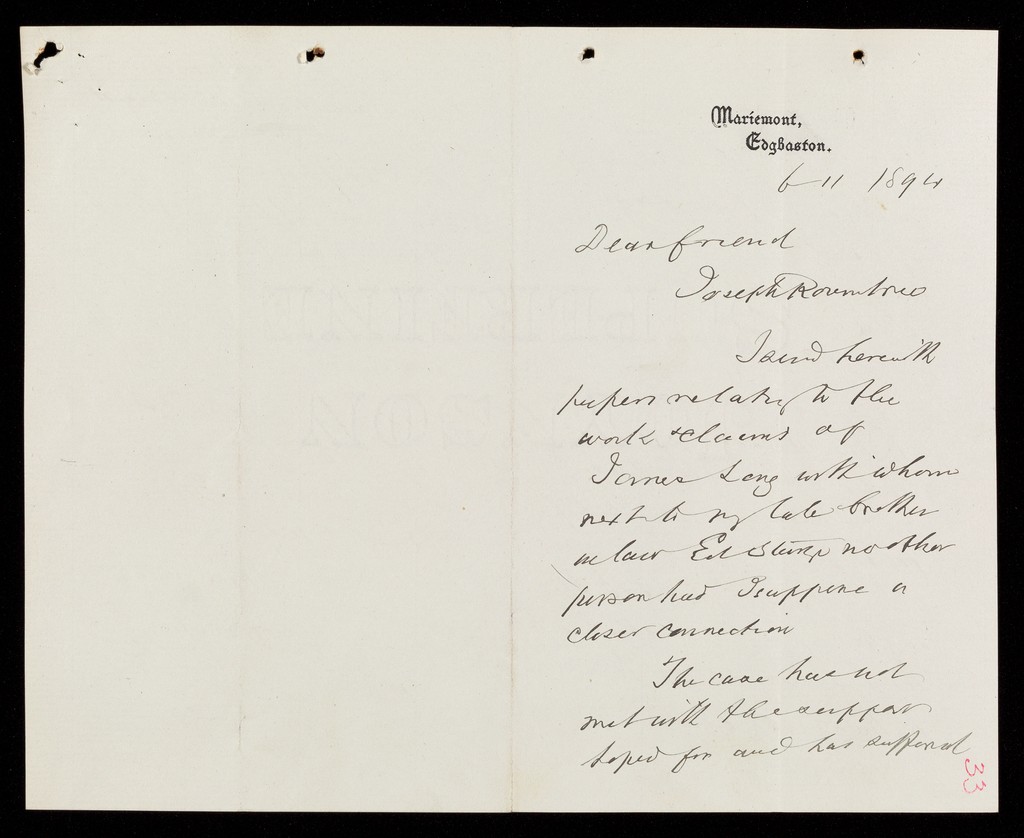 Mariemont,
Edgbaston.
6 11 1894
Dear friend
Joseph Rowntree
I send herewith
papers relating to the
work & claims of
James Long with whom
next to my late brother
in law Ed Sturge no other
person had I suppose a
closer connection
The case has not
met with the support
hoped for and has suffered
33